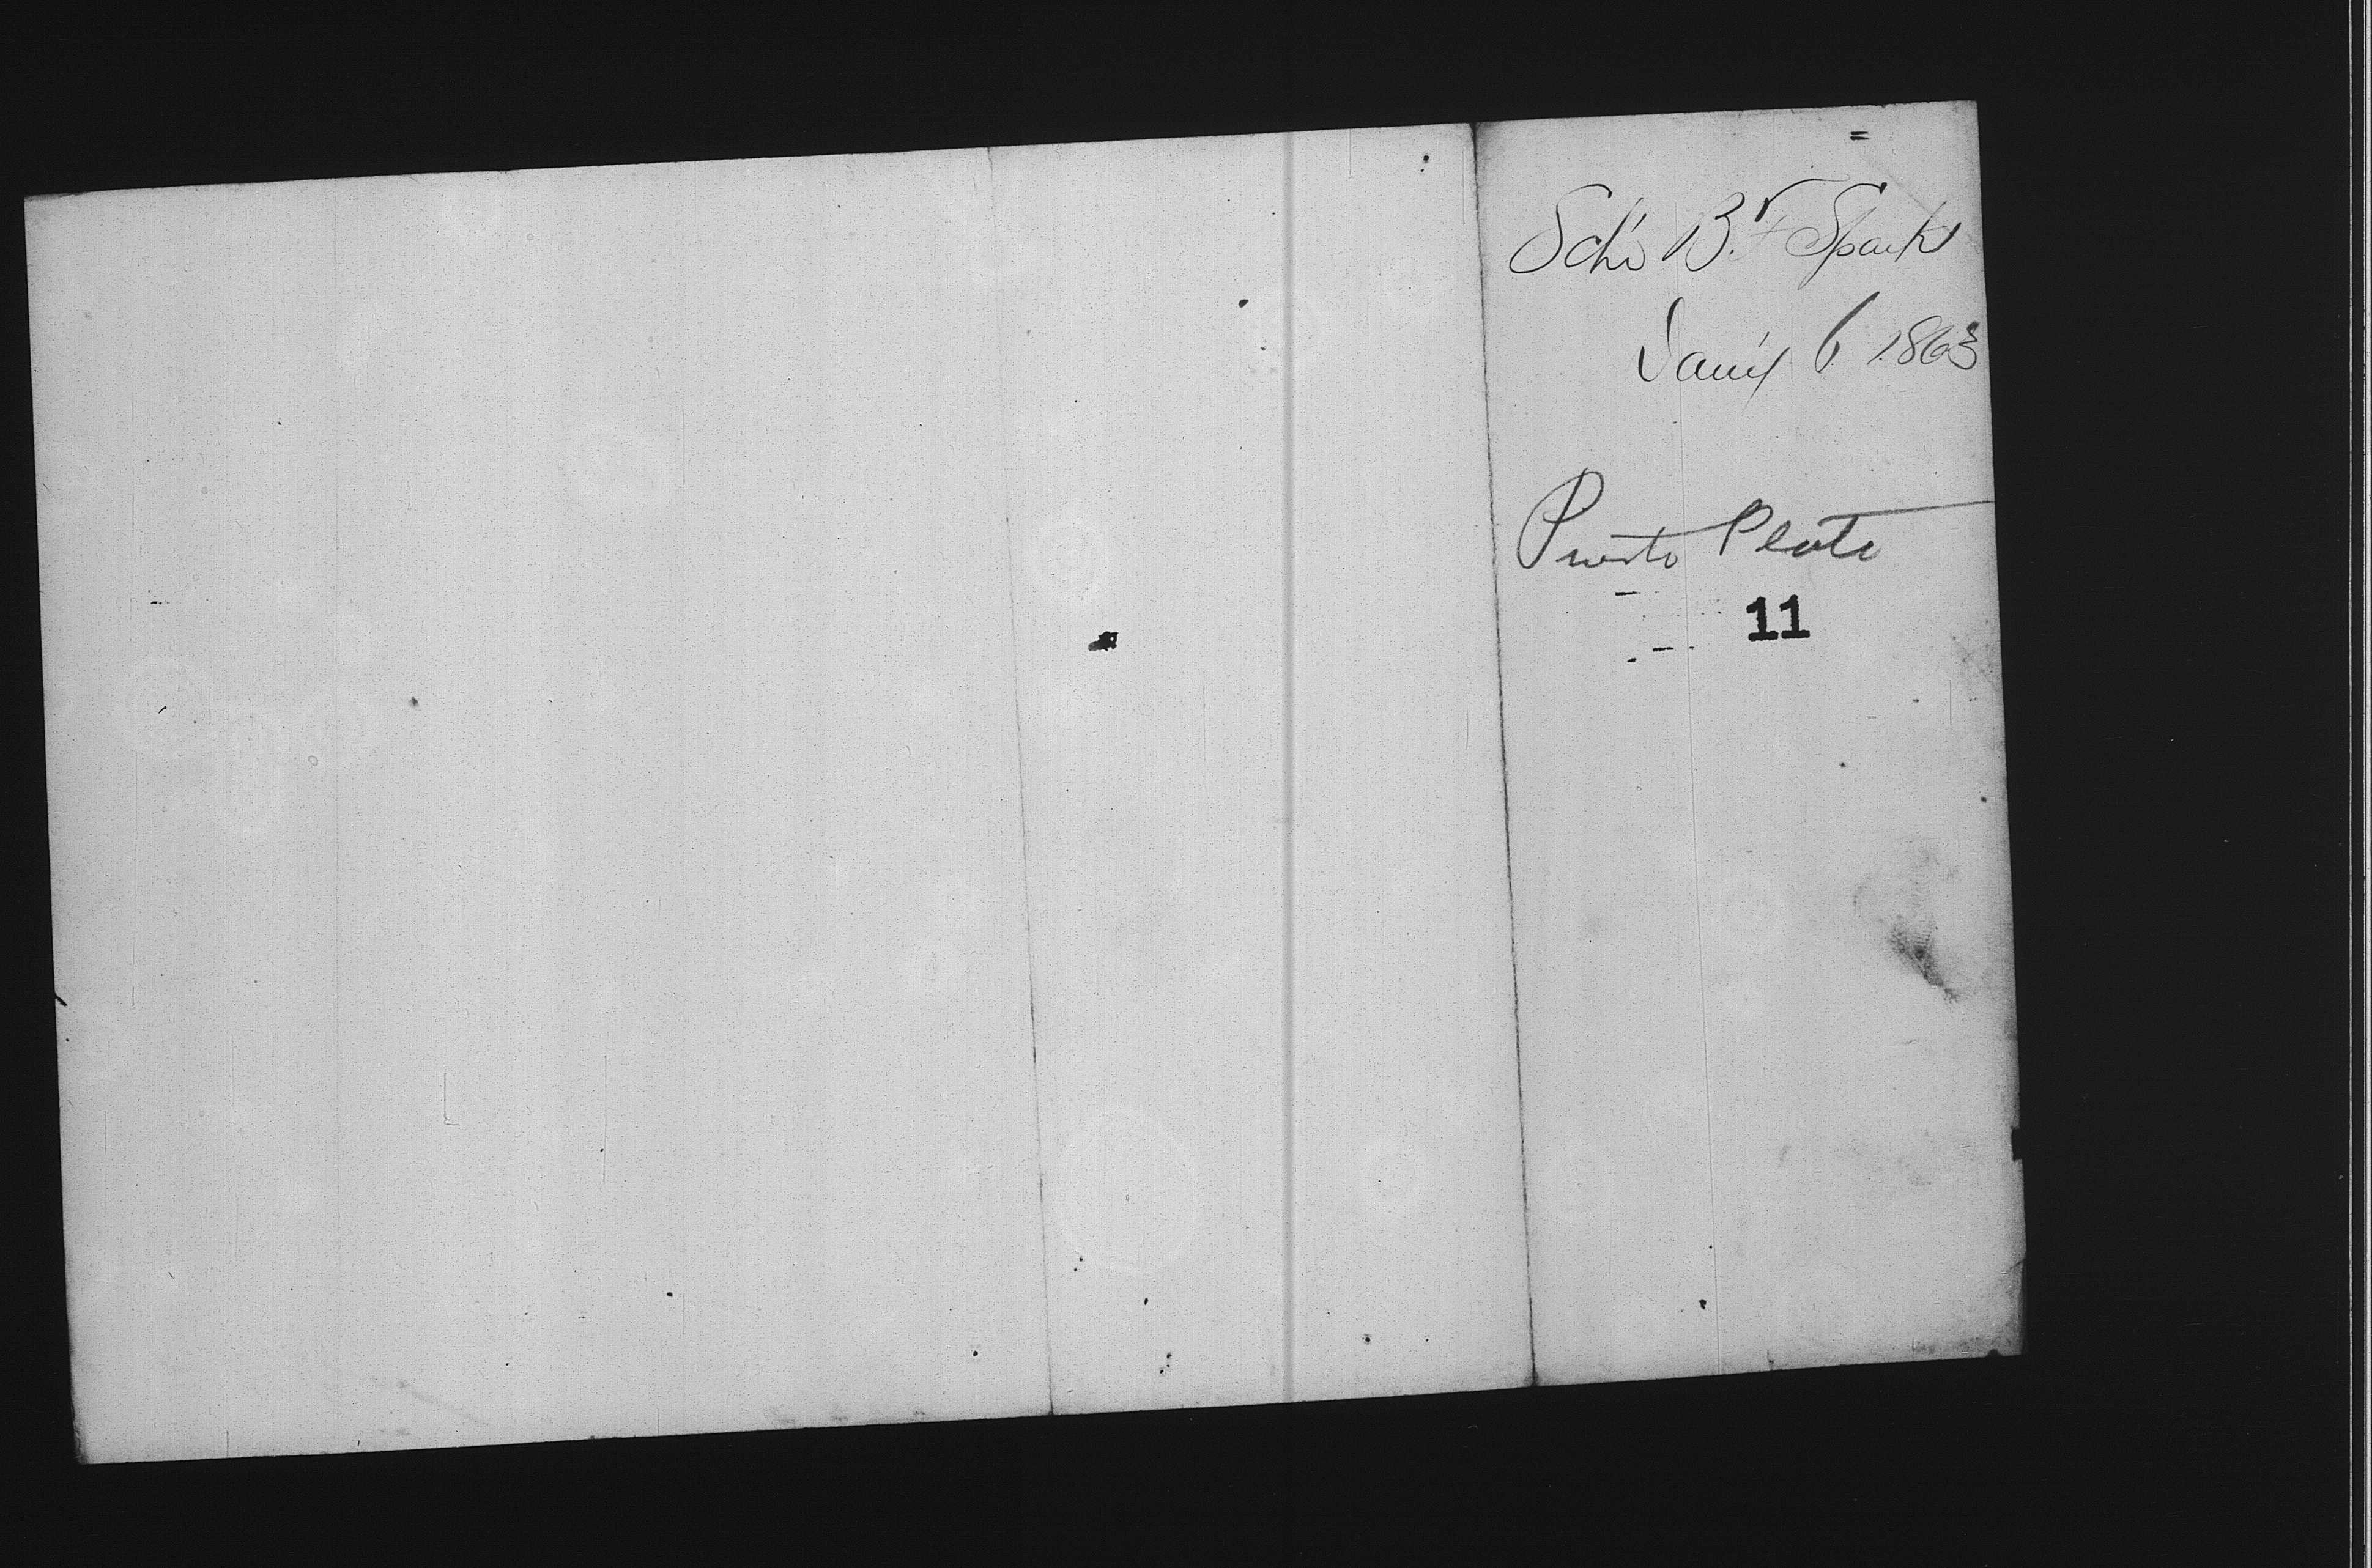 Schr B. F Sparks
Jany 6 1863
Puerto Plate
11